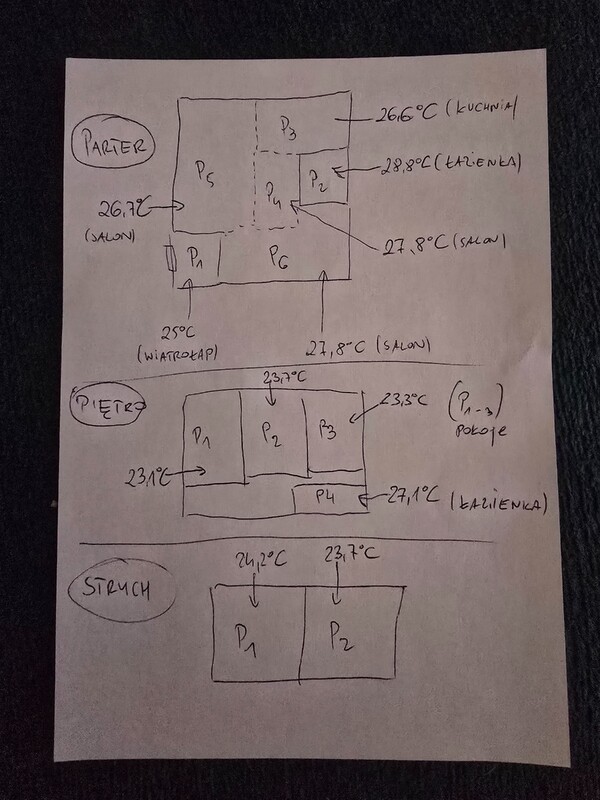 PARTER
P3
26,6°C (KUCHNIA)
P5
P2
28,8°C (ŁAZIENKA)
P4
26,7°C
(SALON)
27,8°C (SALON)
P1
P6
25°C
(WIATROŁAP)
27,8°C (SALON)
PIĘTRO
23,7°C
23,3°C
(P1-3)
POKOJE
P1
P2
P3
23,1°C
P4
27,1°C (ŁAZIENKA)
STRYCH
24,2°C
23,7°C
P1
P2